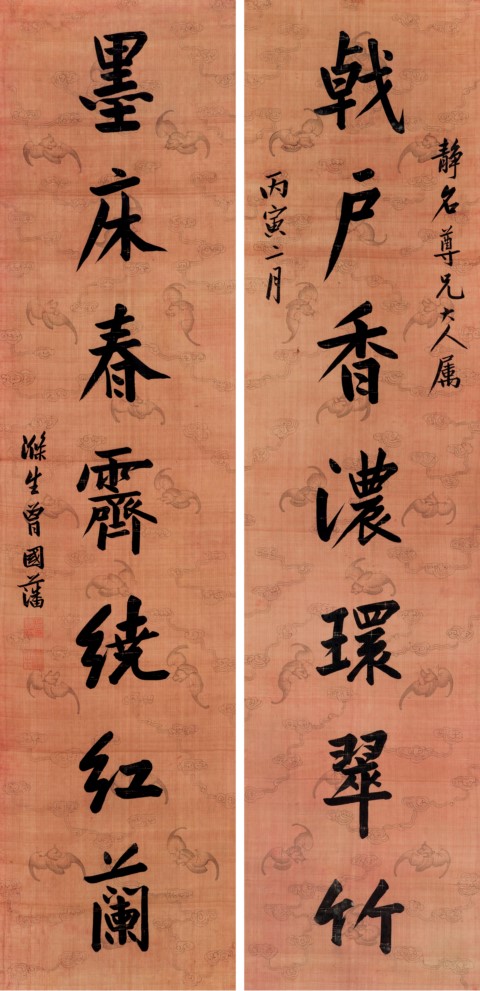 静名尊兄大人属
戟户香濃環翠竹
丙寅二月
墨床春霽繞紅蘭
滌生曾國藩